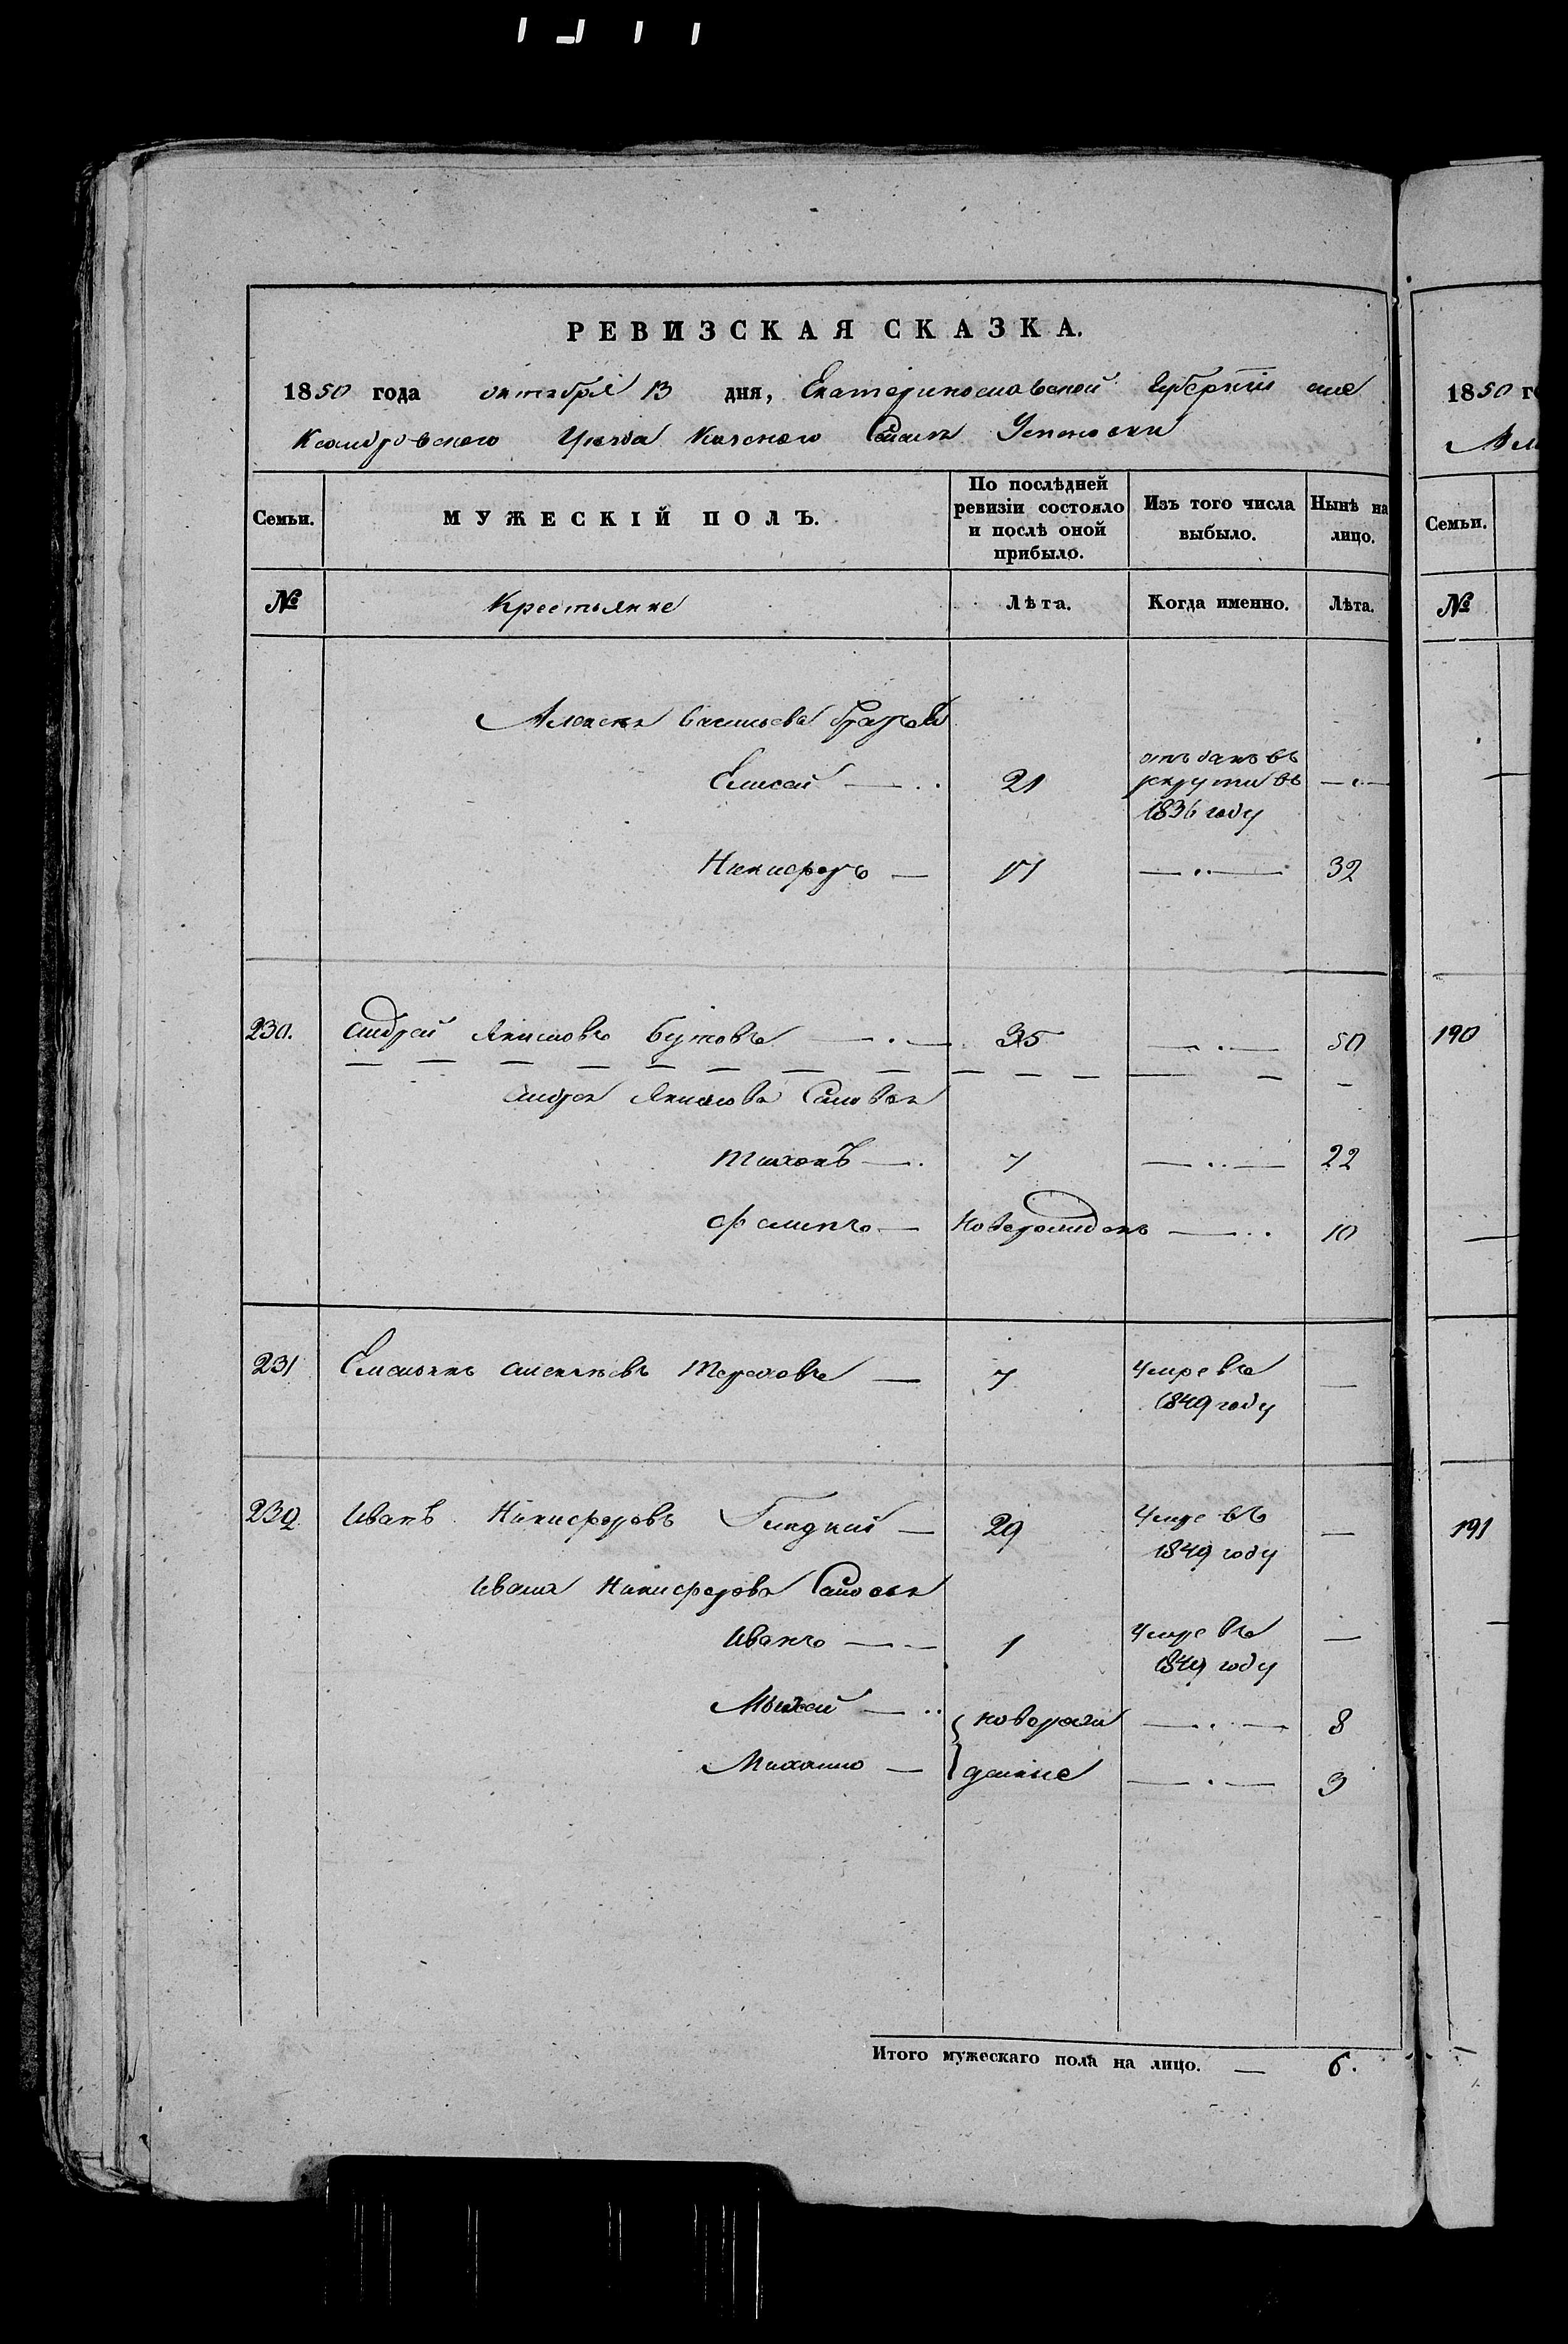 РЕВИЗСКАЯ СКАЗКА.
1850 года октября 13 дня, Екатеринославской Губернiи Але
Ксандровского Уезда Казеного Села Успеновки
Семьи. МУЖЕСКІЙ ПОЛЪ. По послѣдней ревизіи состояло и послѣ оной прибыло. Изъ того числа выбыло. Нынѣ на лицо.
№ Крестьяние Лѣта. Когда именно. Лѣта.
Алексея Васильева братья
Елисей 21 отъданъ въ рекруты въ 1836 году
Никифоръ 17 32
230. Андрей Якимовъ Бутовъ 35 50
Андрея Якимова Сыновья
Тихонъ 7 22
Филипъ Новорожденъ 10
231 Емельянъ Тереховъ 7 Умре въ 1849 году
232 Иванъ Никифоровъ 29 Умре въ 1849 году
Ивана Никифорова Сыновья
Иванъ 1 Умре въ 1849 году
новорож 8
Михаило денные 3
Итого мужескаго пола на лицо. 6.
1850 го
Але
Семьи.
№
190
191